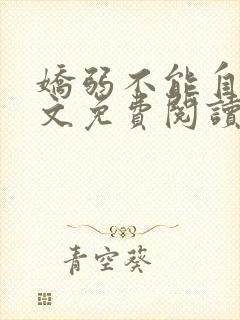 嬌弱不能自
文免費閱讀
青空葵